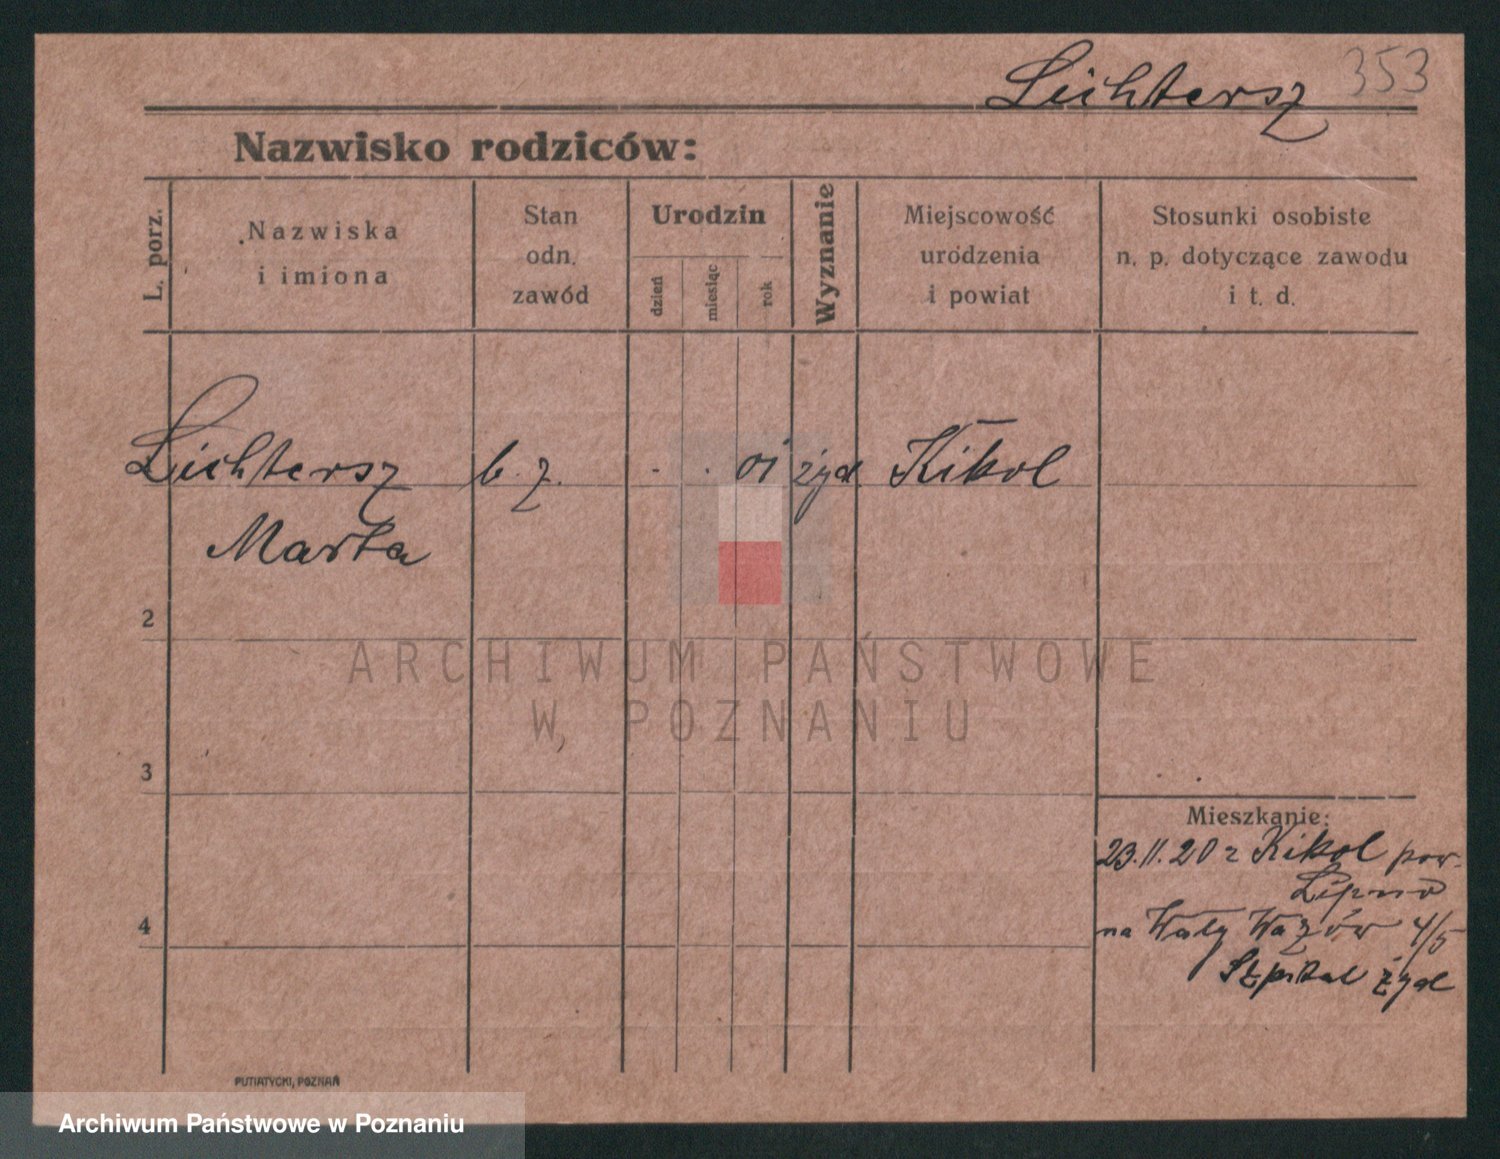 Lichtersz 353
Nazwisko rodziców:
L. porz.
Nazwiska
i imiona
Stan
odn.
zawód
Urodzin
dzień
miesiąc
rok
Wyznanie
Miejscowość
urodzenia
i powiat
Stosunki osobiste
n. p. dotyczące zawodu
i t. d.
Lichtersz b. z. . . 01 żyd Kikol
Marta
2
ARCHIWUM PAŃSTWOWE
W POZNANIU
3
Mieszkanie:
23.11.20 z Kikol pow.
Lipno
na Wały Wazów 4/5
Szpital żyd
4
PUTIATYCKI, POZNAŃ
Archiwum Państwowe w Poznaniu